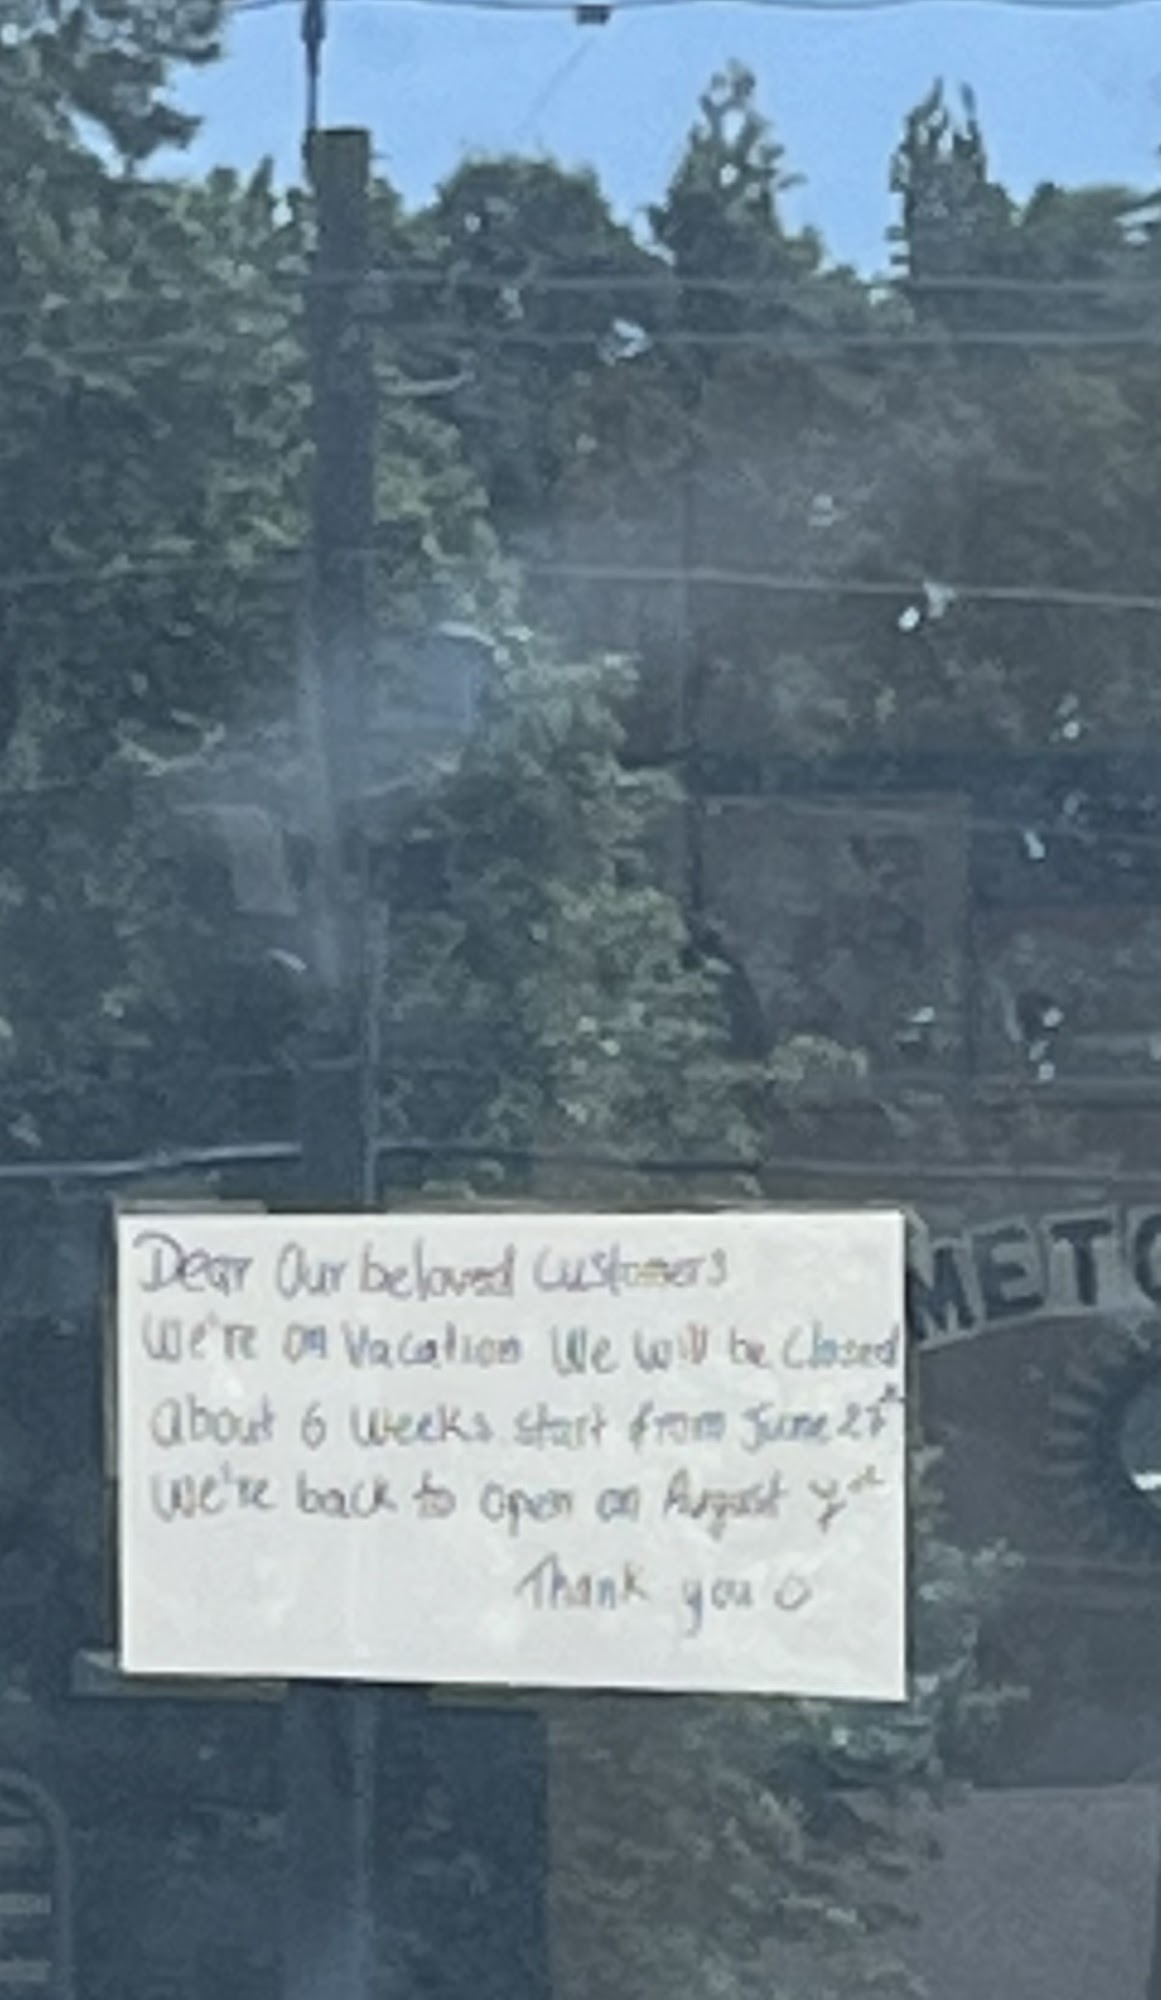 Dear Our beloved Customers
We're on Vacation We will be Closed
About 6 weeks start from June 27th
We're back to open on August
Thank you
METO